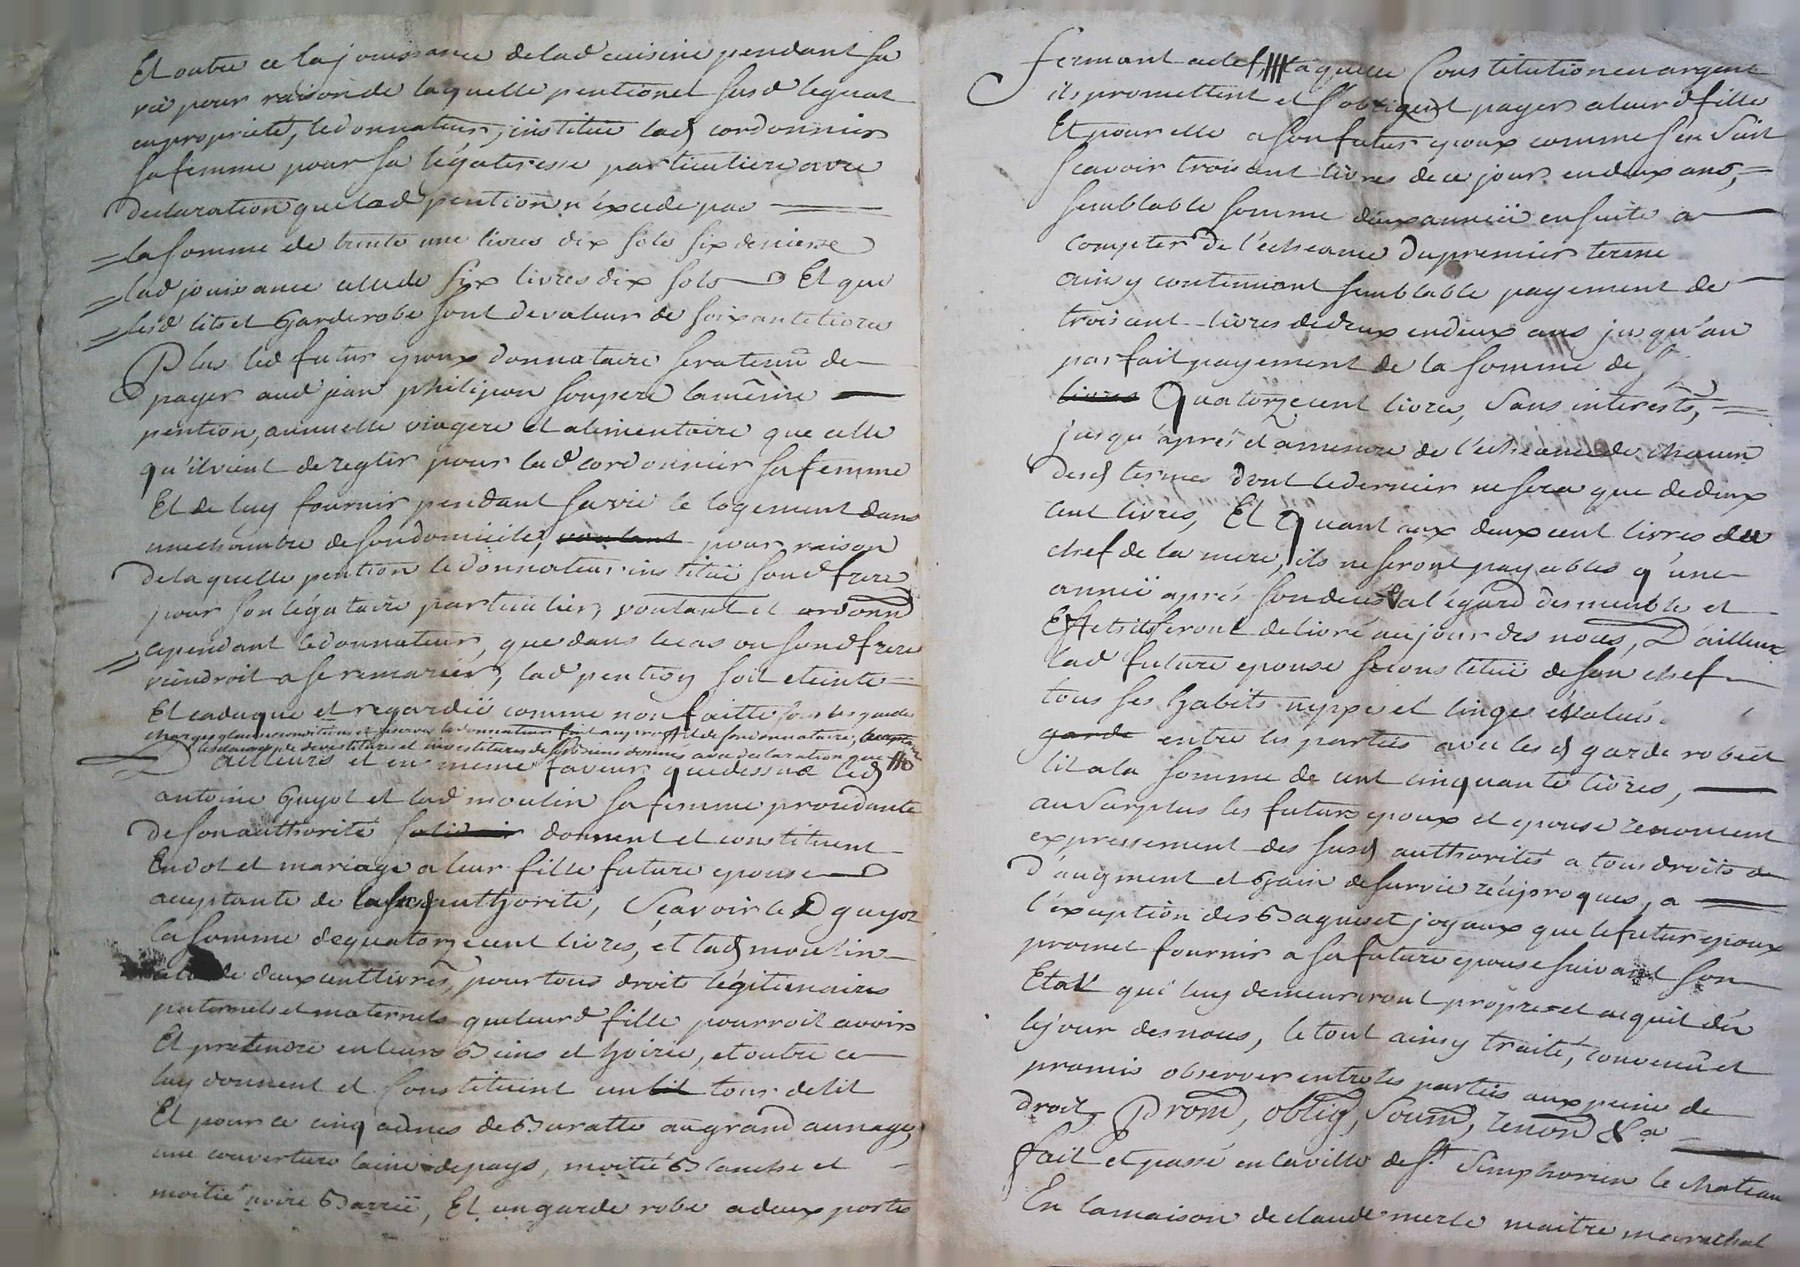 Et outre ce la jouissance de lad cuisine pendant sa
vie pour raison de laquelle pention et susd legue at
en propriete, le donnateur, institue lad cordonnier
sa femme pour sa légateresse particuliere avec
declaration que lad pention n'éxcede pas
la somme de trente une livres dix sols six deniers
lad jouissance celle de six livres dix sols Et que
lesd lits et Garderobe sont de valeur de soixante livres
Plus led futur epoux donnataire sera tenû de
payer aud jean philipon son pere la même
pention, annuelle viagere et alimentaire que celle
qu'il vient de regler pour lad cordonnier sa femme
Et de luy fournir pendant sa vie le logement dans
une chambre de son domicile, voulant pour raison
de laquelle pention le donnateur institüe sond frere
pour son légataire particulier, voulant et ordonn
cependant le donnateur, que dans le cas ou sond frere
viendroit a se remarier, lad pention soit eteinte
Et caduque et regardée comme non faitte sous les quelles
charges clauses conditions et reserves le donnateur
de devestitures et investitures de ses biens donnés avec declaration que
D'ailleurs et en même faveur que dessus led
antoine Guyot et lad moulin sa femme procedante
de son authorité donnent et constituent
En dot et mariage a leur fille future epouse
acceptante de la susd authorité, Sçavoir le D guyot
la somme de quatorze cent livres, et lad moulin
celle de deux cent livres, pour tous droits légitimaires
paternels et maternels que leurd fille pourroit avoir
Et pretendre en leurs Biens et hoirie, et outre ce
luy donnent et Constituent un lit tour de lit
Et pour ce cinq aulnes de Buratte au grand aunage,
une couverture laine de pays, moitié Blanche et
moitié noire Barrée, Et un garde robe a deux portes
fermant a clef, laquelle Constitution en argent
ils promettent et s'obligent payer a leurd fille
Et pour elle a son futur epoux comme s'en suit
Scavoir trois cent livres de ce jour en deux ans,
semblable somme deux année ensuite a
compter de l'echeance du premier terme
ainsy continuant semblable payement de
trois cent livres de deux en deux ans jusqu'au
parfait payement de la somme de
livres Quatorze cent livres, Sans interests,
jusqu'aprés et a mesure de l'echeance de chacun
desd termes dont le dernier ne sera que de deux
cent livres, Et Quant aux deux cent livres du
chef de la mere, ils ne seront payables q'une
année aprés son deces a l'égard des meuble et
Effets ils seront delivré au jour des noces, D'ailleur
lad future epouse se constitüe de son chef
tous ses habits nyppe et linges évalué
garde entre les parties avec lesd garde robe et
lit a la somme de cent cinquante livres,
au surplus les futurs epoux et epouse renoncent
expressement des susd authorités a tous droits de
d'augment et Gain de survie réciproques, a
l'éxception des Bagues et joyaux que le futur epoux
promet fournir a sa future epouse suivant son
Etat qui luy demeureront propres et acquit dés
le jour des noces, le tout ainsy traité, convenû et
promis observer entre les parties aux peine de
droit, Prom, oblig, Soum, renon &a
fait et passé en la ville de St Simphorien le chateau
En la maison de claude merle maitre marechal